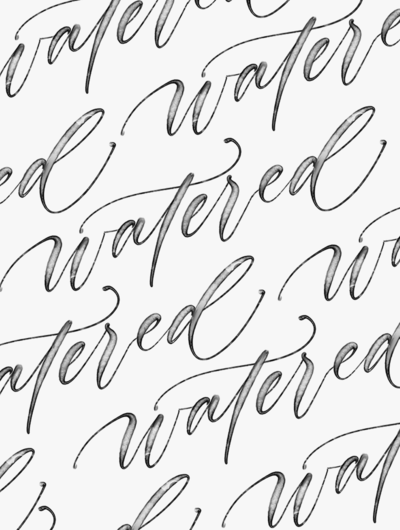 watered
watered
watered
watered
watered
watered
watered
watered